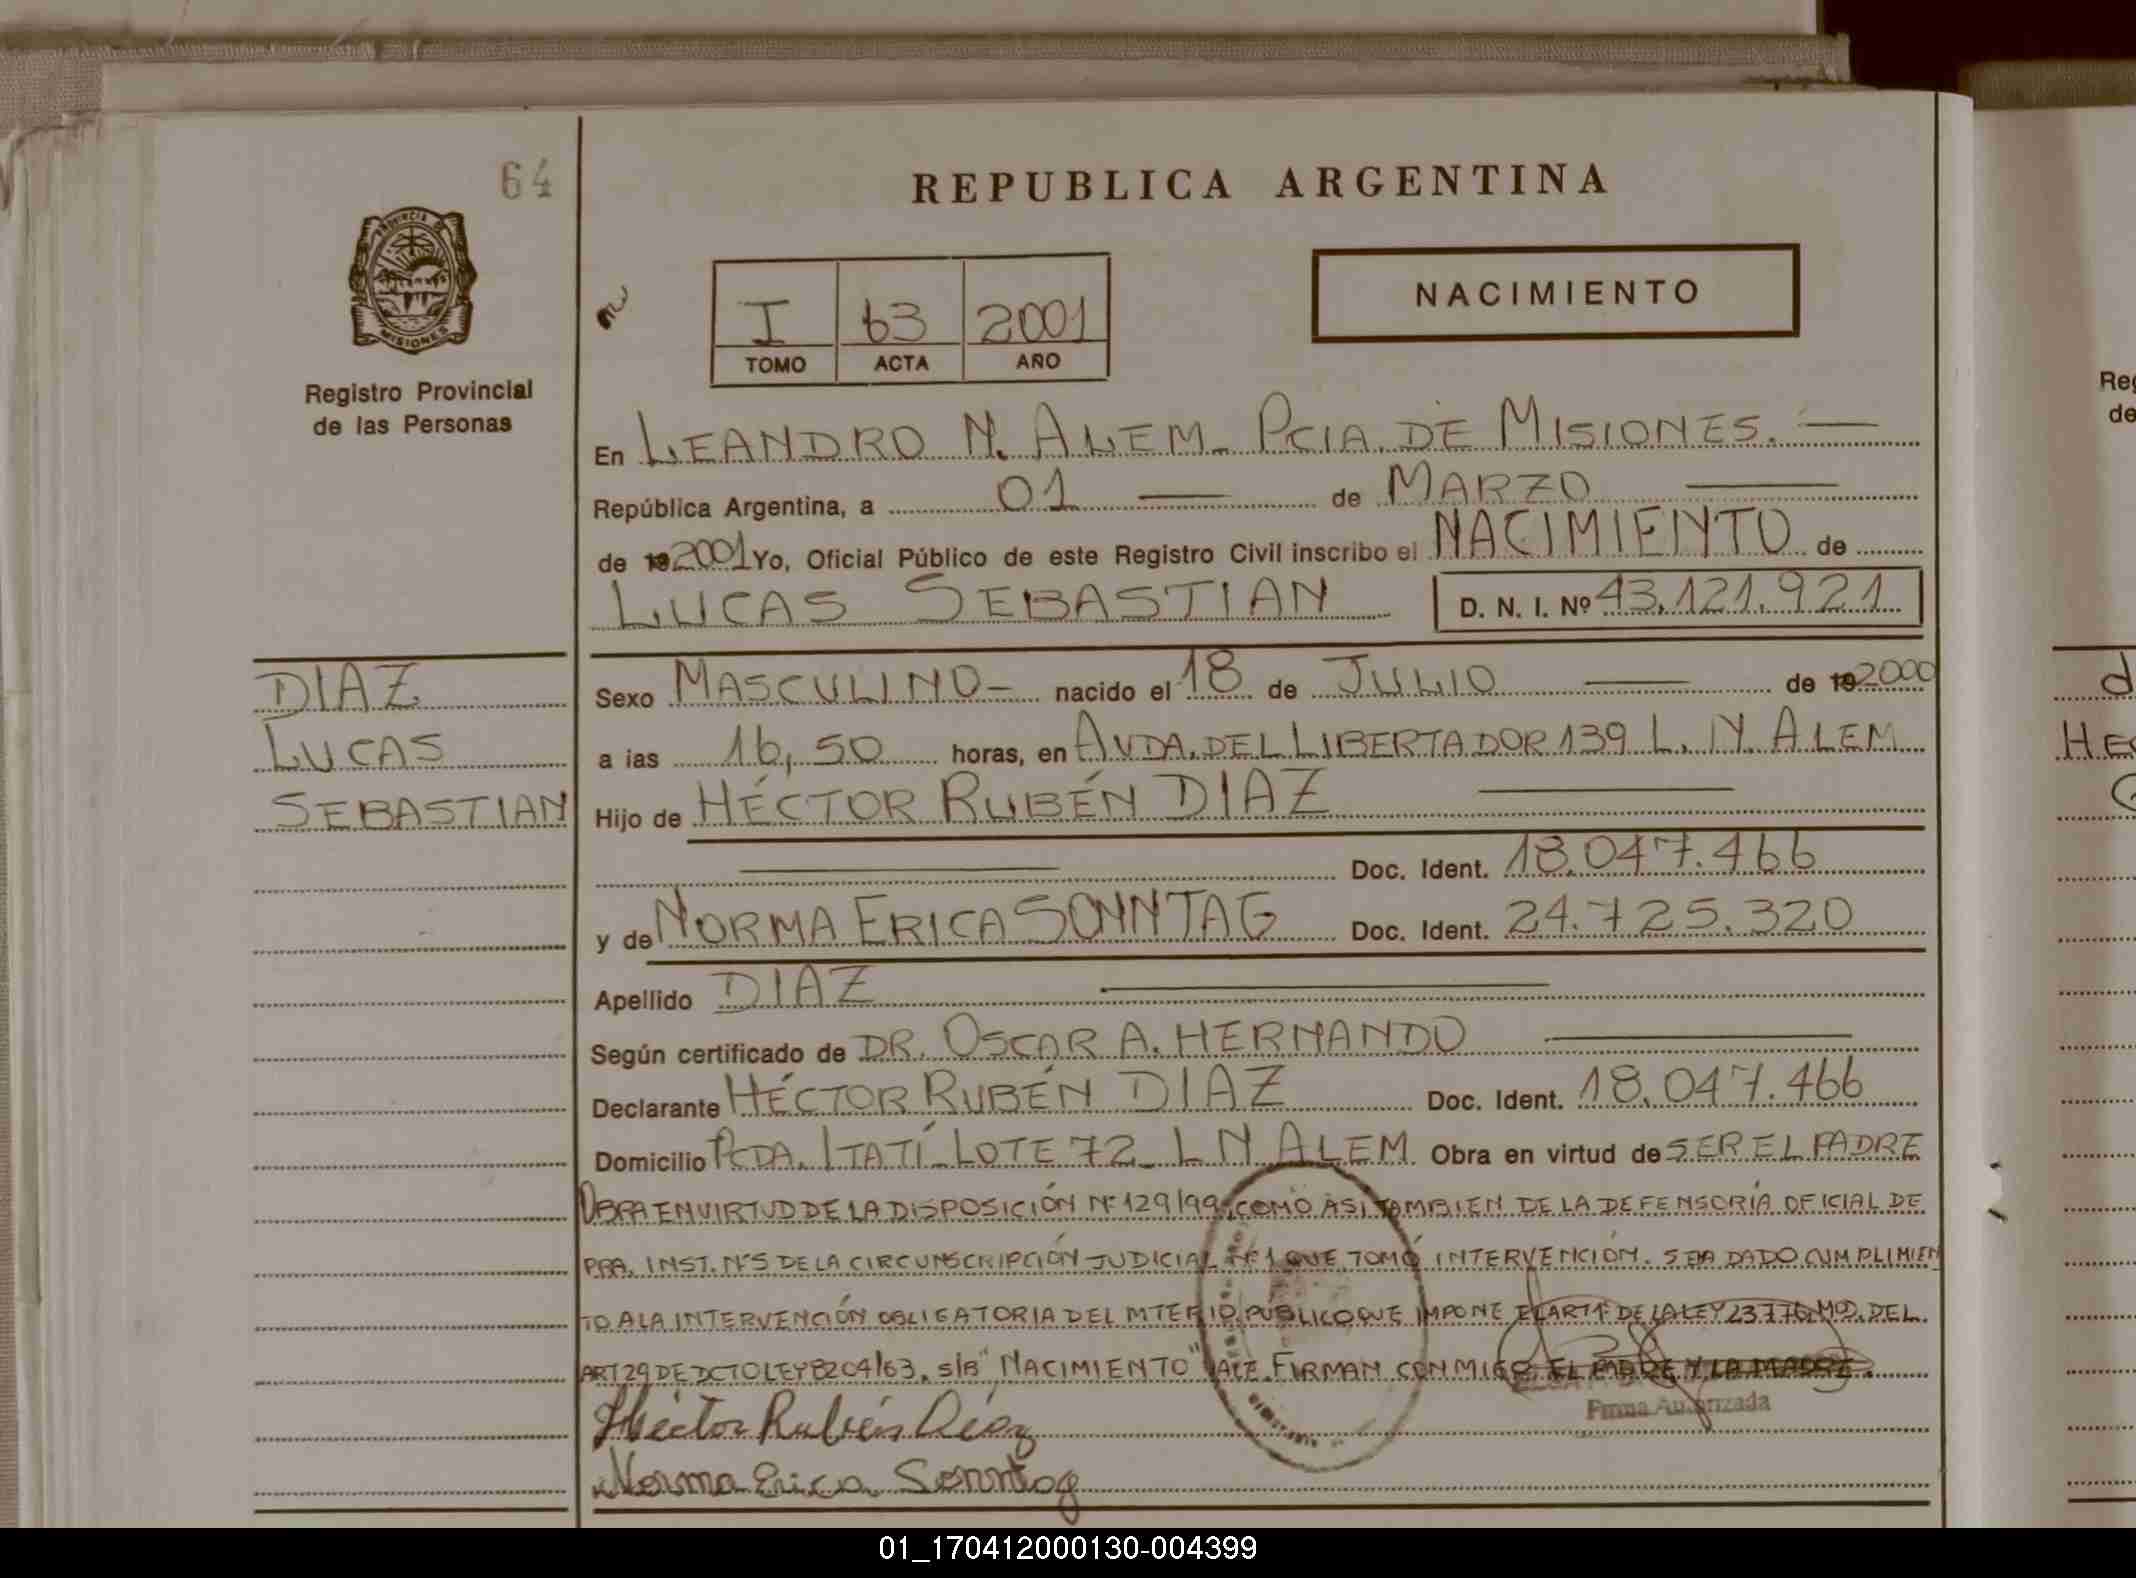 64
REPUBLICA ARGENTINA
PROVINCIA DE
MISIONES
Registro Provincial
de las Personas
I 63 2001
TOMO ACTA AÑO
NACIMIENTO
En LEANDRO N. ALEM - PCIA. DE MISIONES.
República Argentina, a 01 de MARZO
de 19 2001 Yo, Oficial Público de este Registro Civil inscribo el NACIMIENTO de
LUCAS SEBASTIAN D. N. I. Nº 43.121.921
DIAZ
LUCAS
SEBASTIAN
Sexo MASCULINO - nacido el 18 de JULIO de 19 2000
a las 16,50 horas, en AVDA. DEL LIBERTADOR 139 L. N. ALEM
Hijo de HÉCTOR RUBÉN DIAZ
Doc. Ident. 18.047.466
y de NORMA ERICA SONNTAG Doc. Ident. 24.725.320
Apellido DIAZ
Según certificado de DR. OSCAR A. HERNANDO
Declarante HÉCTOR RUBÉN DIAZ Doc. Ident. 18.047.466
Domicilio PCDA. ITATÍ - LOTE 72 - L N ALEM Obra en virtud de SER EL PADRE
OBRA EN VIRTUD DE LA DISPOSICIÓN Nº 129/99, COMO ASI TAMBIEN DE LA DEFENSORÍA OFICIAL DE
PRA. INST. Nº 5 DE LA CIRCUNSCRIPCIÓN JUDICIAL Nº 1 QUE TOMÓ INTERVENCIÓN. SE HA DADO CUMPLIMIEN
TO A LA INTERVENCIÓN OBLIGATORIA DEL MTERIO. PÚBLICO QUE IMPONE EL ART 1º DE LA LEY 23776, MOD. DEL
ART 29 DE DCTO LEY 8204/63. S/B "NACIMIENTO" VALE. FIRMAN CONMIGO EL PADRE Y LA MADRE.
Firma Autorizada
Héctor Rubén Díaz
Norma Erica Sonntag
Reg
de
d
HEC
01_170412000130-004399